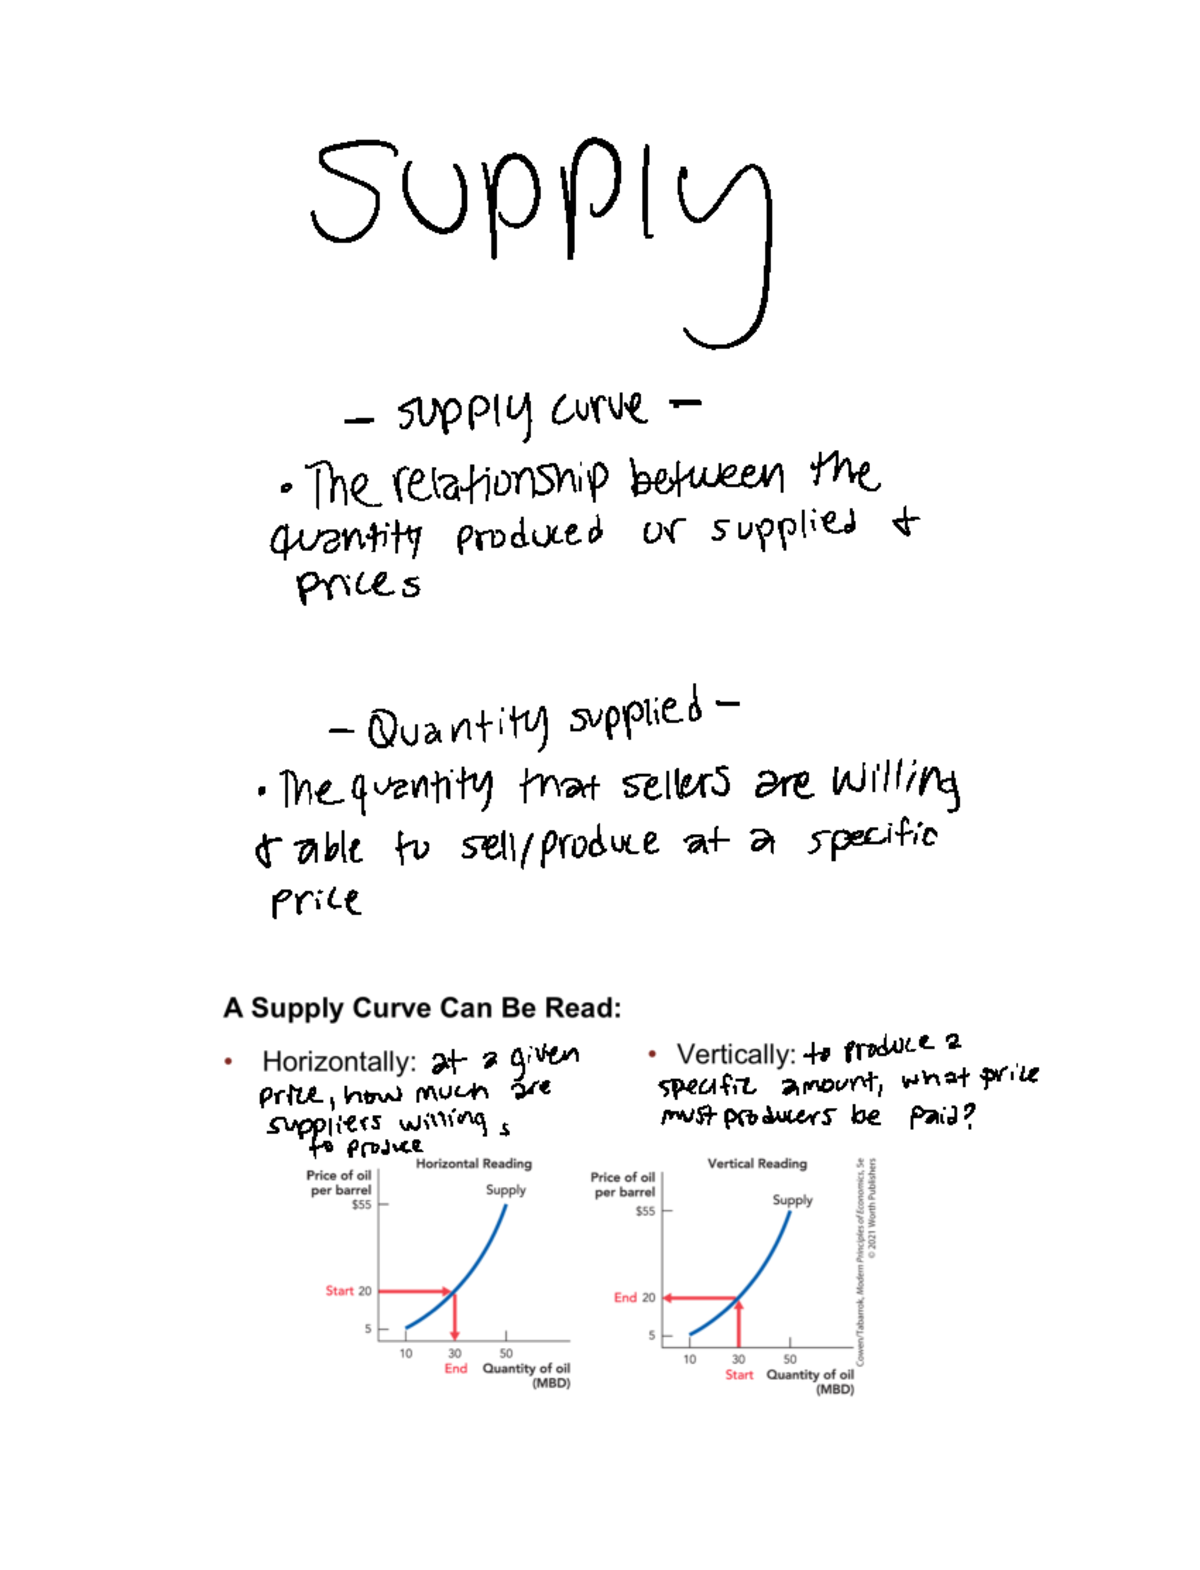 Supply
- supply curve -
• The relationship between the
quantity produced or supplied &
prices
- Quantity supplied -
• The quantity that sellers are willing
& able to sell/produce at a specific
price
A Supply Curve Can Be Read:
• Horizontally: at a given
price, how much are
suppliers willing
to produce
• Vertically: to produce a
specific amount, what price
must producers be paid?
Horizontal Reading
Price of oil
per barrel
$55
Supply
Start 20
5
10 30 50
End Quantity of oil
(MBD)
Vertical Reading
Price of oil
per barrel
$55
Supply
End 20
5
10 30 50
Start Quantity of oil
(MBD)
Cowen/Tabarrok, Modern Principles of Economics, 5e
© 2021 Worth Publishers